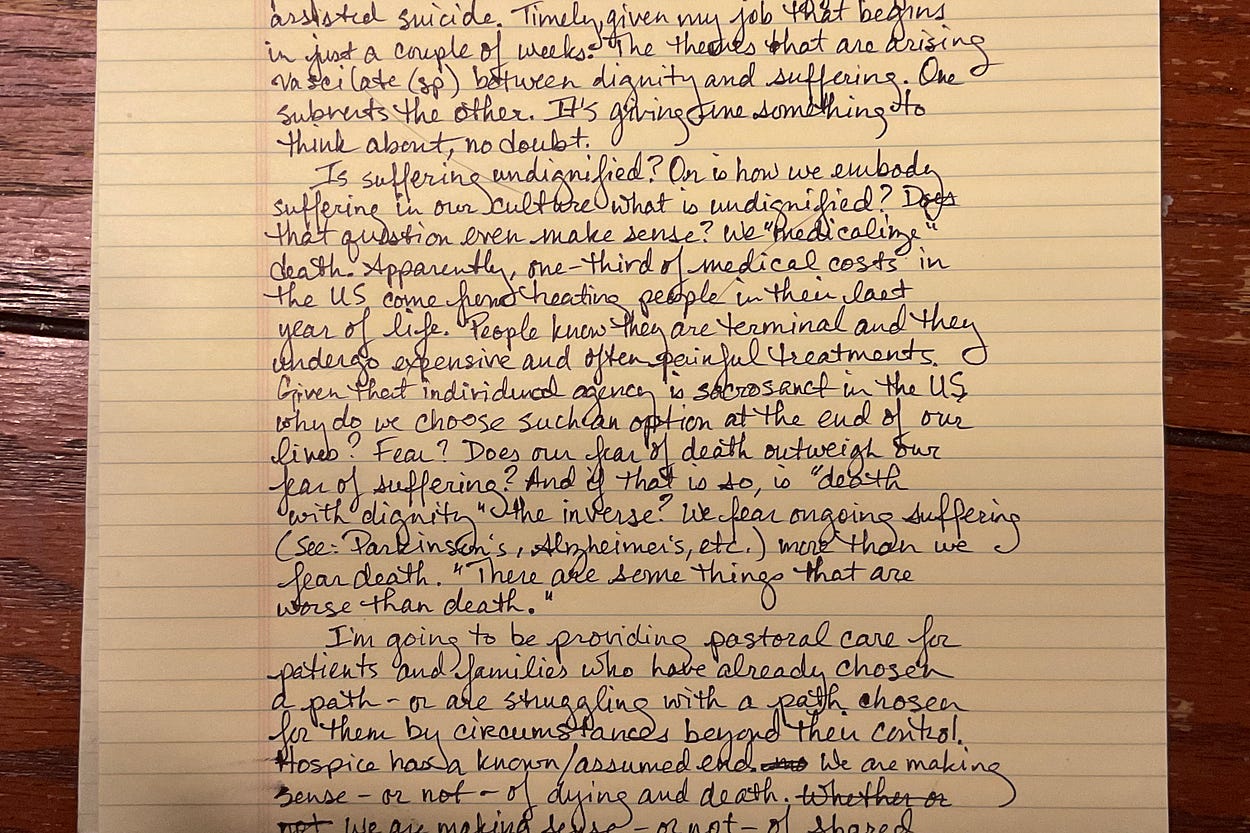 assisted suicide. Timely, given my job that begins
in just a couple of weeks. The themes that are arising
vascilate (sp) between dignity and suffering. One
subverts the other. It's giving me something to
think about, no doubt.
Is suffering undignified? Or is how we embody
suffering in our culture what is undignified? Does
that question even make sense? We "medicalize"
death. Apparently, one-third of medical costs in
the US come from treating people in their last
year of life. People know they are terminal and they
undergo expensive and often painful treatments.
Given that individual agency is sacrosanct in the US,
why do we choose such an option at the end of our
lives? Fear? Does our fear of death outweigh our
fear of suffering? And if that is so, is "death
with dignity" the inverse? We fear ongoing suffering
(see: Parkinson's, Alzheimer's, etc.) more than we
fear death. "There are some things that are
worse than death."
I'm going to be providing pastoral care for
patients and families who have already chosen
a path - or are struggling with a path chosen
for them by circumstances beyond their control.
Hospice has a known/assumed end. We are making
sense - or not - of dying and death. Whether or
not We are making sense - or not - of shared